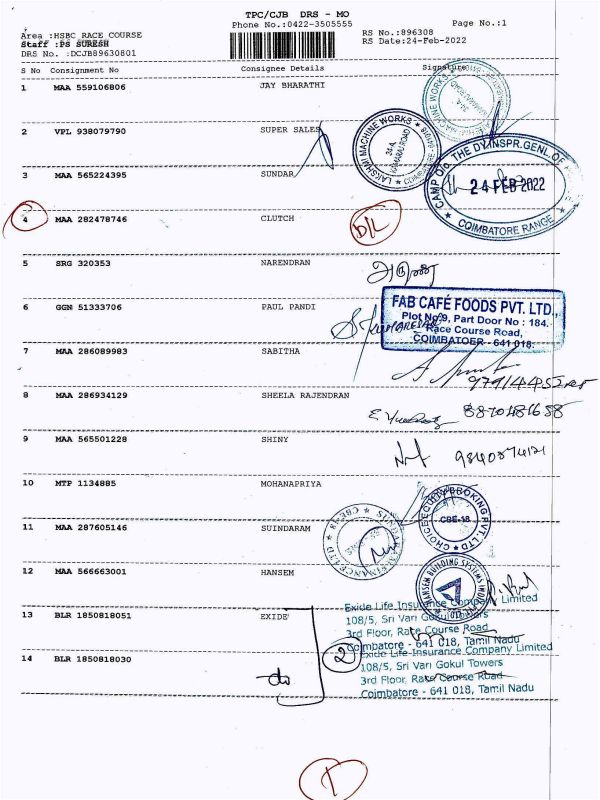 TPC/CJB DRS - MO
Phone No.:0422-3505555
Page No.:1
Area :HSBC RACE COURSE
Staff :PS SURESH
DRS No. :DCJB89630801
RS No.:896308
RS Date:24-Feb-2022
S No Consignment No Consignee Details Signature
1 MAA 559106806 JAY BHARATHI
2 VPL 938079790 SUPER SALES
LAKSHMI MACHINE WORKS
34-A,
KAMARAJ ROAD
COIMBATORE
3 MAA 565224395 SUNDAR
CAMP O/o THE DY.INSPR.GENL.OF
24 FEB 2022
COIMBATORE RANGE
4 MAA 282478746 CLUTCH D/L
5 SRG 320353 NARENDRAN அருண்
6 GGN 51333706 PAUL PANDI
FAB CAFÉ FOODS PVT. LTD.,
Plot No:9, Part Door No : 184.
Race Course Road,
COIMBATOER - 641 018.
7 MAA 286089983 SABITHA
8 MAA 286934129 SHEELA RAJENDRAN
9 MAA 565501228 SHINY
10 MTP 1134885 MOHANAPRIYA
CBE-18
11 MAA 287605146 SUINDARAM
SUNDARAM FINANCE LTD
CBE-18
12 MAA 566663001 HANSEM
HANSEM BUILDING SYSTEMS
13 BLR 1850818051 EXIDE
Exide Life Insurance Company Limited
108/5, Sri Vari Gokul Towers
3rd Floor, Race Course Road
Coimbatore - 641 018, Tamil Nadu
14 BLR 1850818030 do 2
Exide Life Insurance Company Limited
108/5, Sri Vari Gokul Towers
3rd Floor, Race Course Road
Coimbatore - 641 018, Tamil Nadu
1